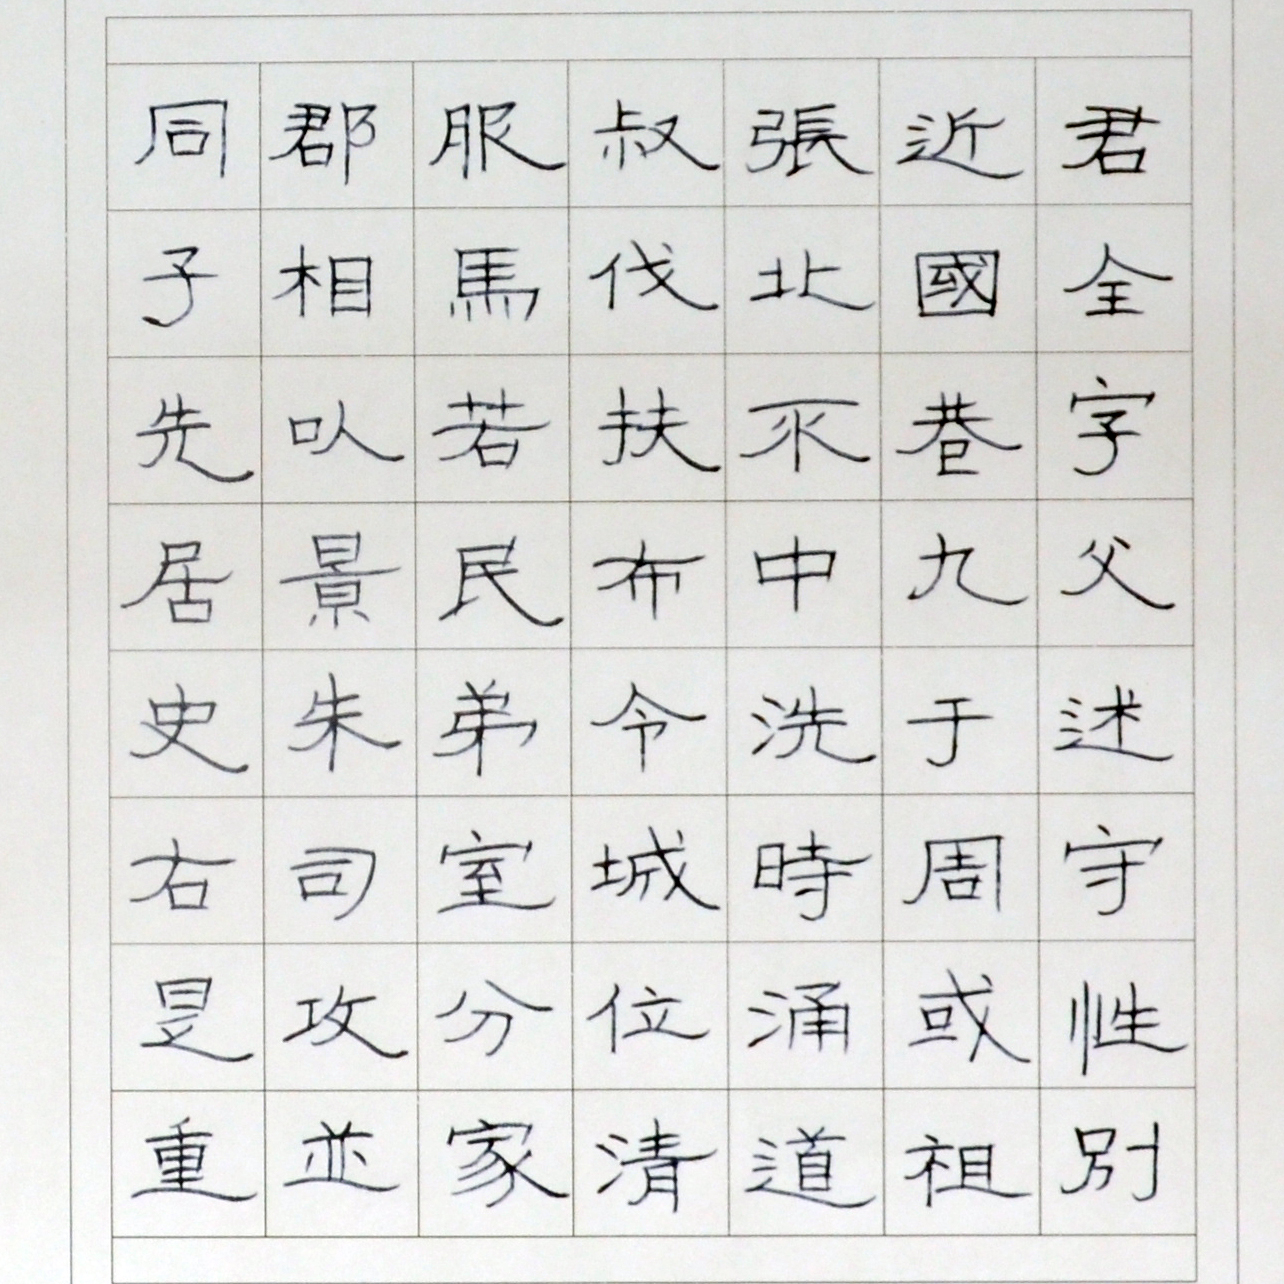 君全字父述守性別
近國巷九于周或祖
張北不中洗時涌道
叔伐扶布令城位清
服馬若民弟室分家
郡相㕥景朱司攻並
同子先居史右是重